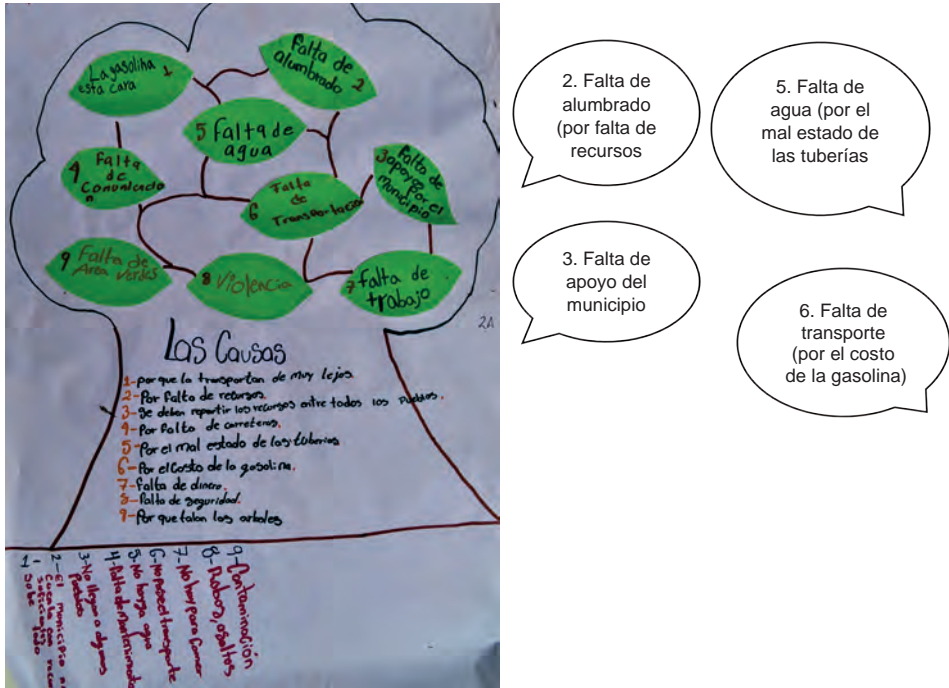 La gasolina 1
esta cara
Falta de
alumbrado 2
5 Falta de
agua
4 Falta
de
Comunicacio
n
Falta
6 de
Transportacion
Falta de
3 apoyo
por el
municipio
9 Falta de
Area verdes
8 Violencia
7 falta de
trabajo
2A
Las Causas
1-por que la transportan de muy lejos
2-Por falta de recursos.
3-Se deben repartir los recursos entre todos los Pueblos.
4-Por falta de carreteras.
5-Por el mal estado de las tuberias
6-Por el Costo de la gasolina.
7-falta de dinero.
8-falta de seguridad.
9-Por que talan los arboles
1- sube todo
2-El municipio no
Cuenta con recur
suficientes
3-No llegan a algunos
Pueblos
4-falta de mantenimiento
5-No haya agua
6-No pase el transporte
7-No hay para Comer
8-Robos, asaltos
9-Contaminación
2. Falta de
alumbrado
(por falta de
recursos
5. Falta de
agua (por el
mal estado de
las tuberías
3. Falta de
apoyo del
municipio
6. Falta de
transporte
(por el costo
de la gasolina)